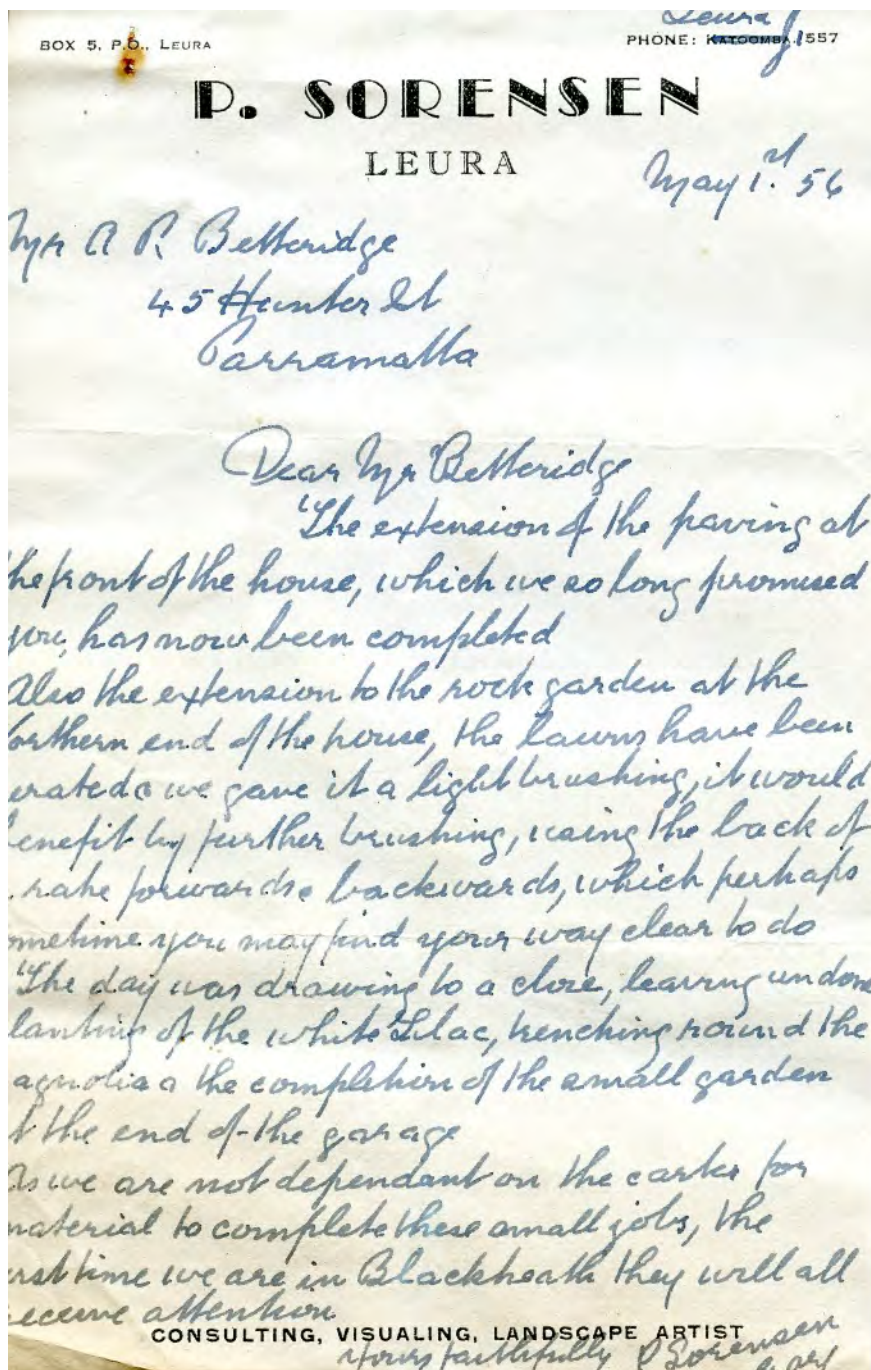 Leura
BOX 5, P.O., LEURA
PHONE: KATOOMBA 557
P. SORENSEN
LEURA
May 1st. 56
Mr A R Betteridge
45 Hunter St
Parramatta
Dear Mr Betteridge
The extension of the paving at
the front of the house, which we so long promised
you, has now been completed
Also the extension to the rock garden at the
orthern end of the house, the lawns have been
erated & we gave it a light brushing, it would
enefit by further brushing, using the back of
rake forwards & backwards, which perhaps
ometime you may find your way clear to do
The day was drawing to a close, leaving undone
lanting of the white Lilac, trenching round the
agnolia & the completion of the small garden
t the end of the garage
As we are not dependant on the carter for
material to complete these small jobs, the
irst time we are in Blackheath they will all
receive attention
CONSULTING, VISUALING, LANDSCAPE ARTIST
Yours faithfully P Sorensen